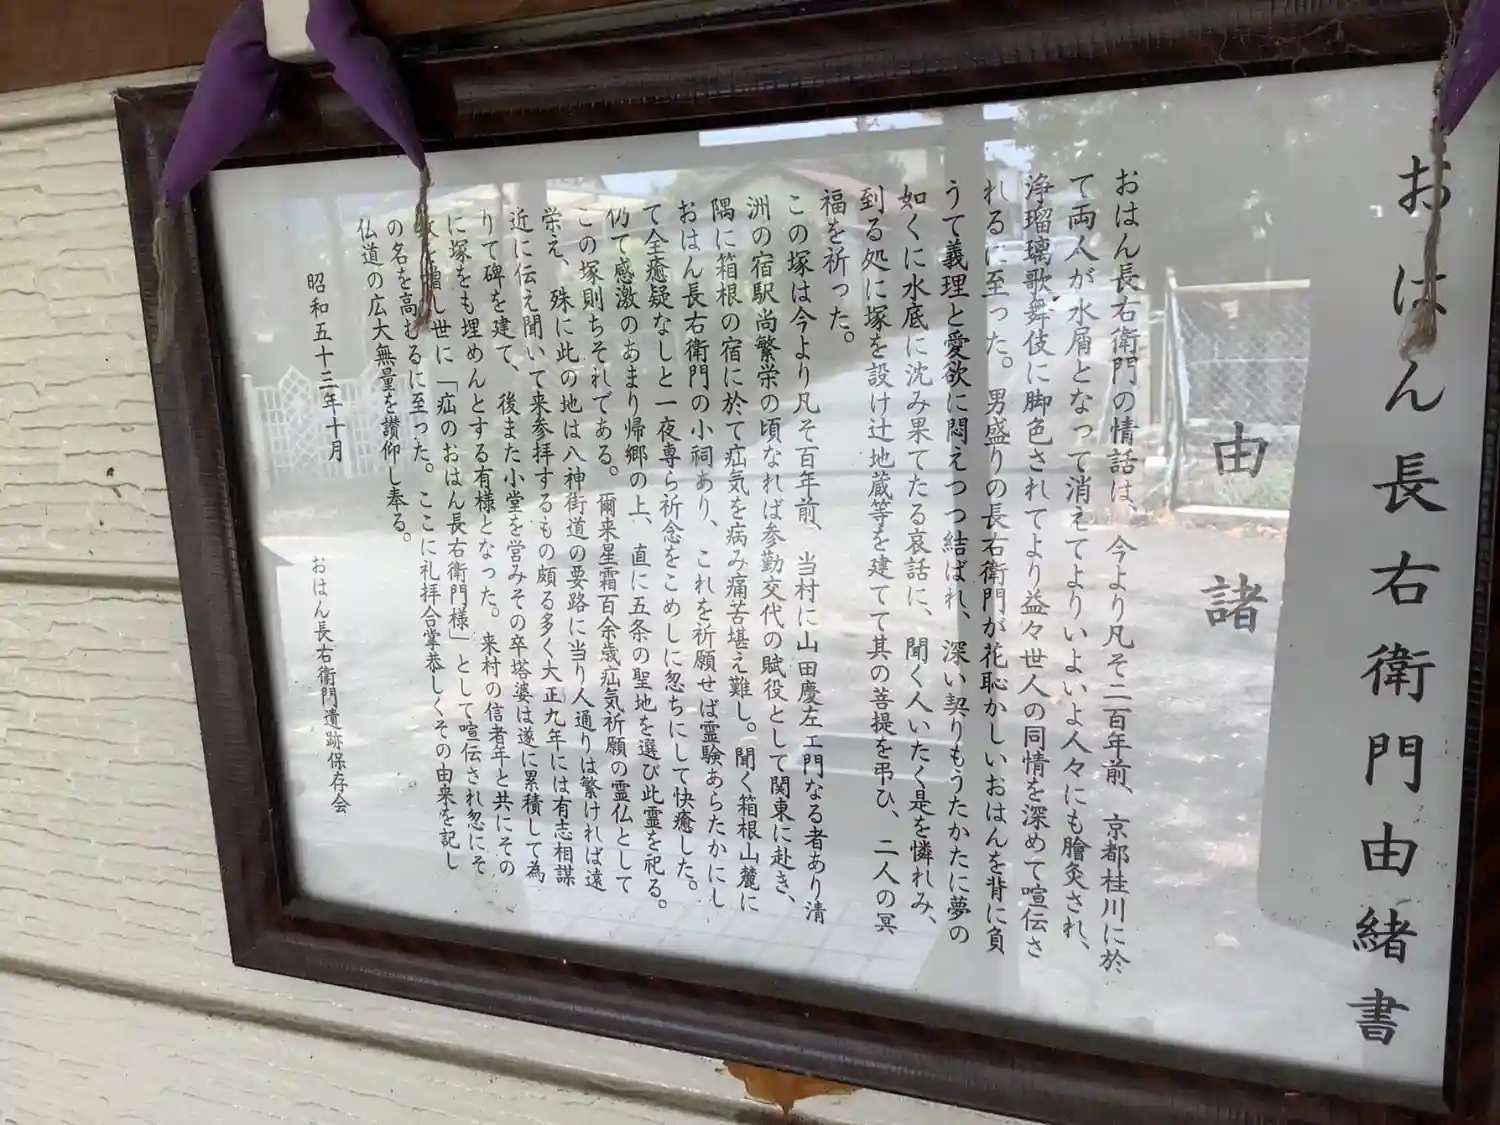 おはん長右衛門由緒書
由諸
おはん長右衛門の情話は、今より凡そ二百年前、京都桂川に於
て両人が水屑となって消えてよりいよいよ人々にも膾炙され、
浄瑠璃歌舞伎に脚色されてより益々世人の同情を深めて喧伝さ
れるに至った。男盛りの長右衛門が花恥かしいおはんを背に負
うて義理と愛欲に悶えつつ結ばれ、深い契りもうたかたに夢の
如くに水底に沈み果てたる哀話に、聞く人いたく是を憐れみ、
到る処に塚を設け辻地蔵等を建てて其の菩提を弔ひ、二人の冥
福を祈った。
この塚は今より凡そ百年前、当村に山田慶左エ門なる者あり清
洲の宿駅尚繁栄の頃なれば参勤交代の賦役として関東に赴き、
隅に箱根の宿に於て疝気を病み痛苦堪え難し。聞く箱根山麓に
おはん長右衛門の小祠あり、これを祈願せば霊験あらたかにし
て全癒疑なしと一夜専ら祈念をこめしに忽ちにして快癒した。
仍て感激のあまり帰郷の上、直に五条の聖地を選び此霊を祀る。
この塚則ちそれである。爾来星霜百余歳疝気祈願の霊仏として
栄え、殊に此の地は八神街道の要路に当り人通りは繁ければ遠
近に伝え聞いて来参拝するもの頗る多く大正九年には有志相謀
りて碑を建て、後また小堂を営みその卒塔婆は遂に累積して為
に塚をも埋めんとする有様となった。来村の信者年と共にその
を増し世に「疝のおはん長右衛門様」として喧伝され忽にそ
の名を高むるに至った。ここに礼拝合掌恭しくその由来を記し
仏道の広大無量を讃仰し奉る。
昭和五十三年十月
おはん長右衛門遺跡保存会